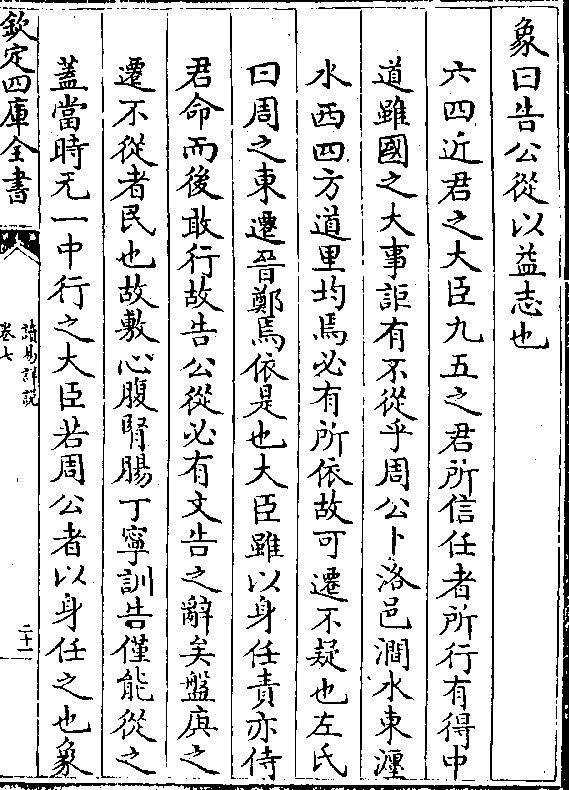 象曰告公從以益志也
六四近君之大臣九五之君所信任者所行有得中
道雖國之大事詎有不從乎周公卜洛邑澗水東瀍
水西四方道里均焉必有所依故可遷不疑也左氏
曰周之東遷晉鄭焉依是也大臣雖以身任責亦待
君命而後敢行故告公從必有文告之辭矣盤庚之
遷不從者民也故敷心腹腎腸丁寧訓告僅能從之
蓋當時无一中行之大臣若周公者以身任之也象
欽定四庫全書
讀易詳說
卷七
二十一